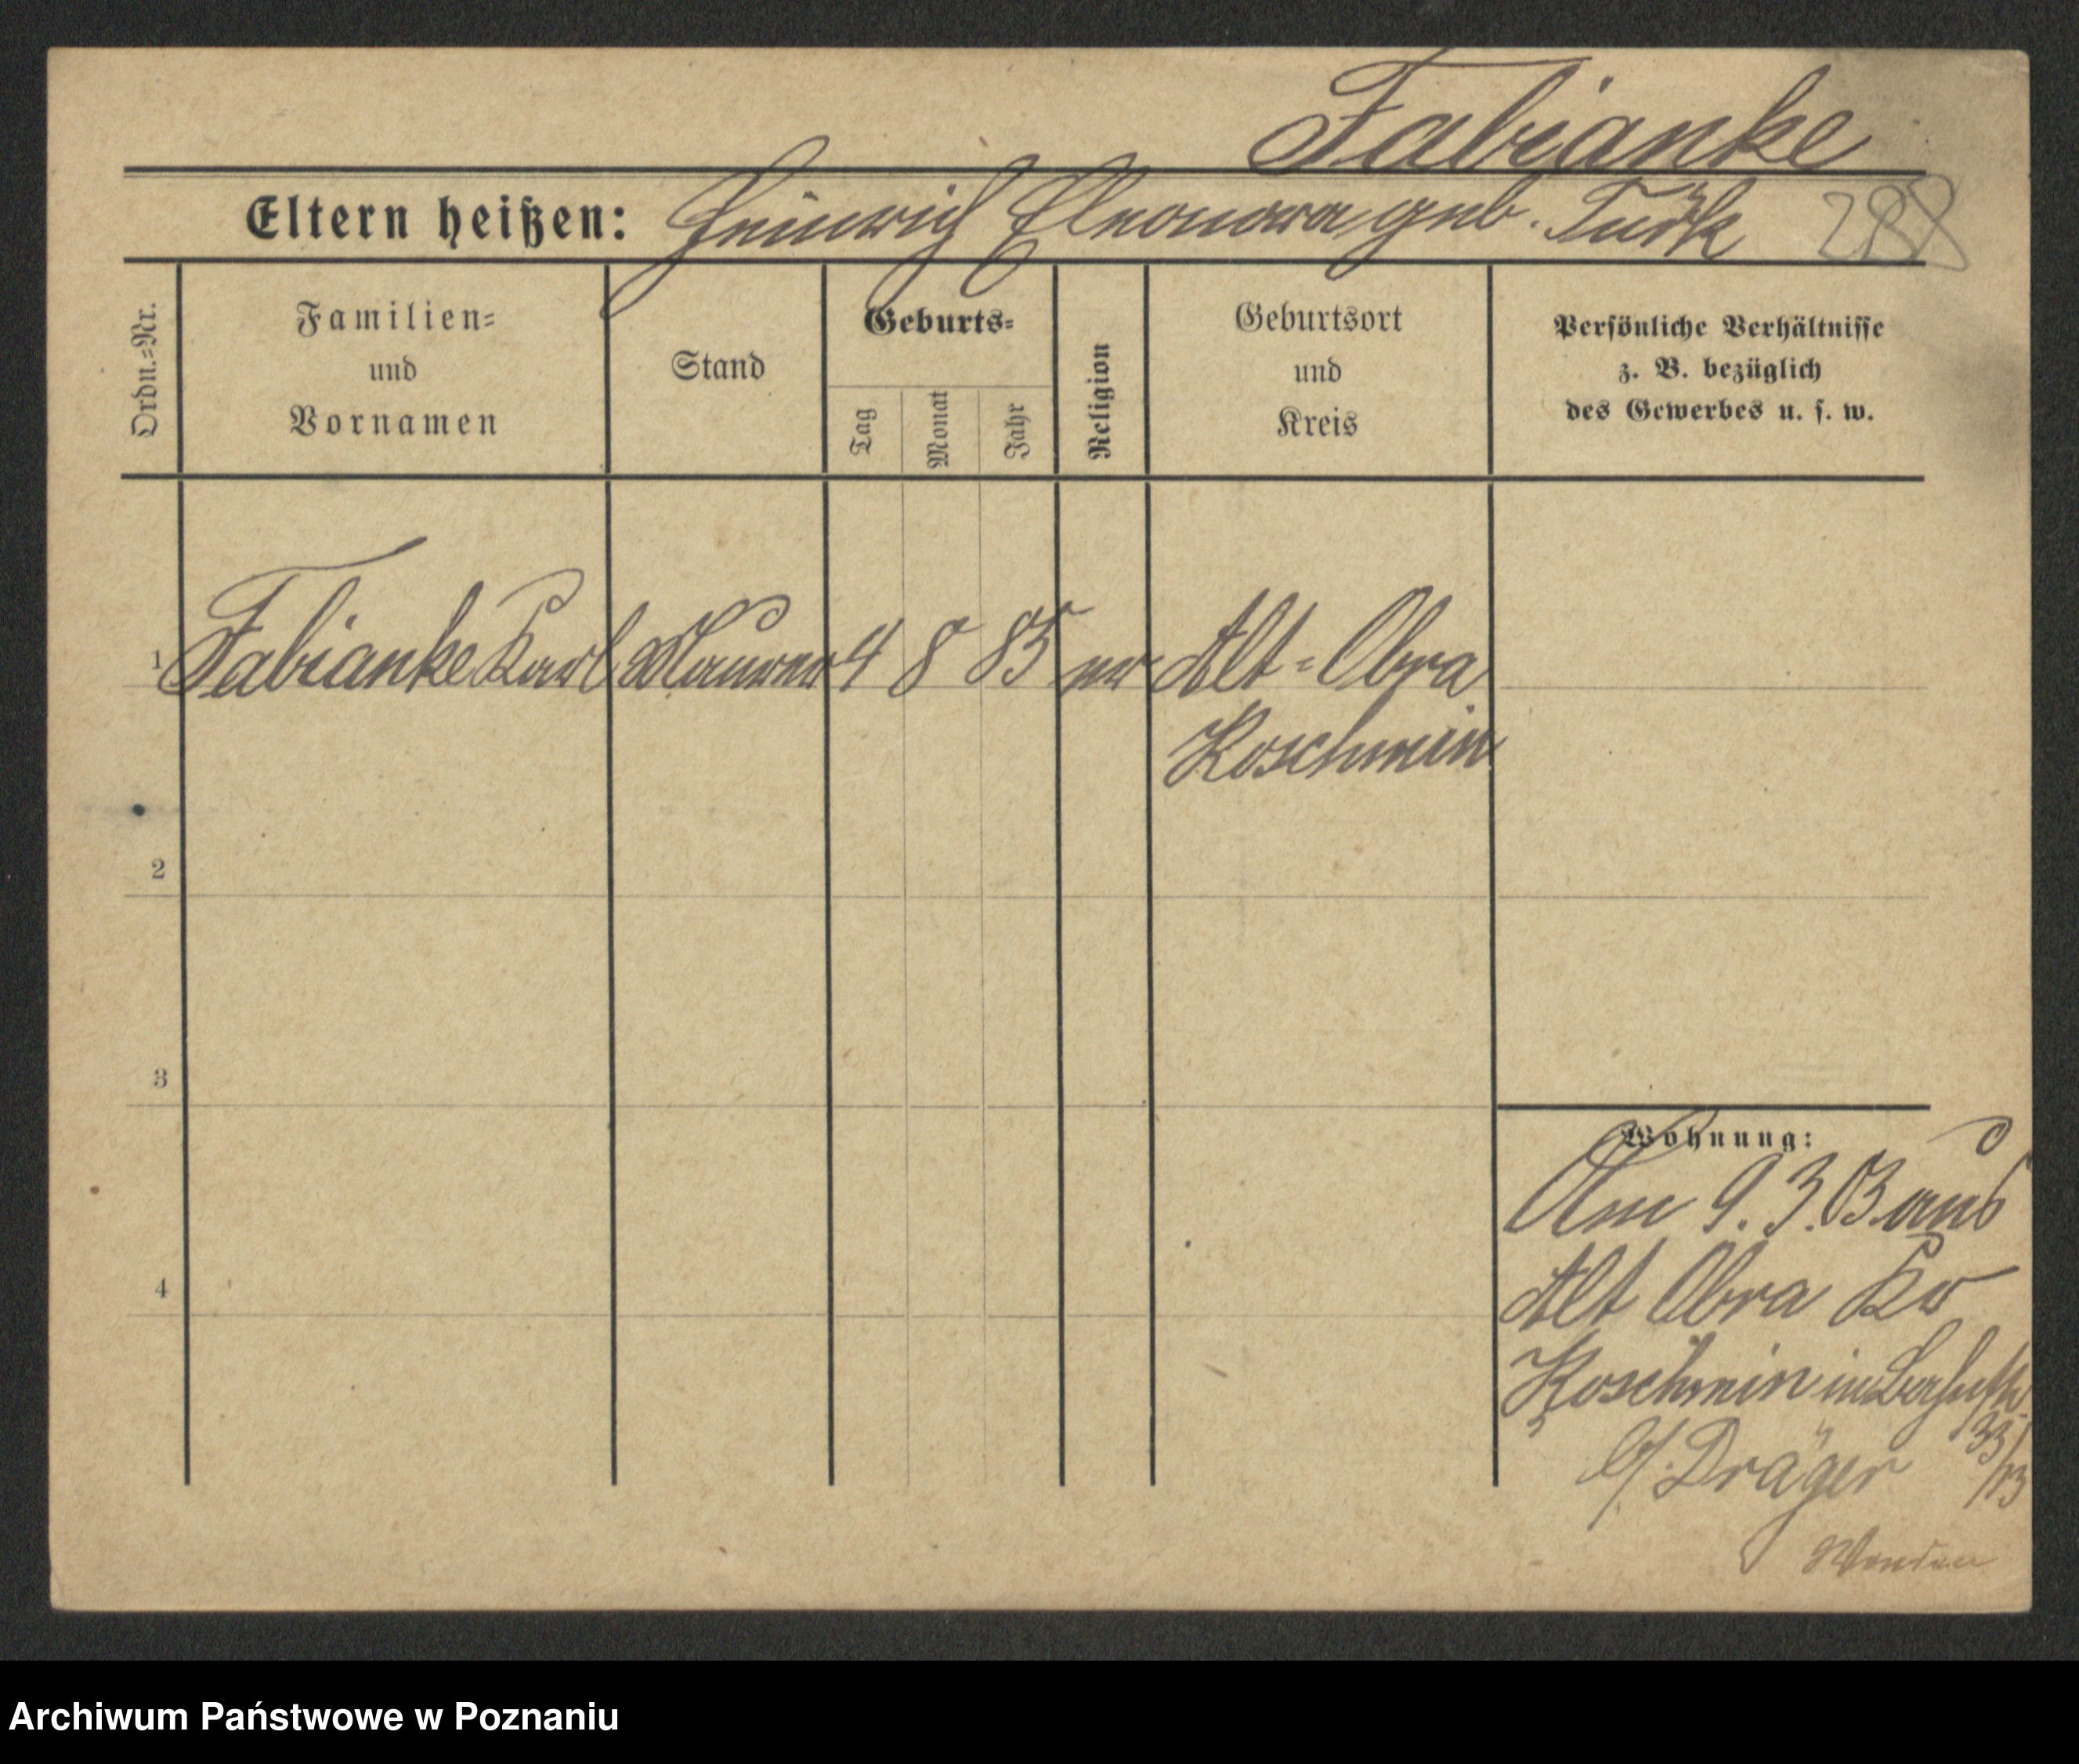 Fabianke
Eltern heißen: Heinrich Eleonora geb. Türk 288
Ordn.=Nr.
Familien=
und
Vornamen
Stand
Geburts=
Tag
Monat
Jahr
Religion
Geburtsort
und
Kreis
Persönliche Verhältnisse
z. B. bezüglich
des Gewerbes u. s. w.
1 Fabianke Karl Maurer 4 8 85 ev Alt=Obra
Koschmin
2
3
4
Wohnung:
Am 9. 3. 03 aus
Alt Obra Kr
Koschmin in
33/
b/ Dräger /13
Wenden
Archiwum Państwowe w Poznaniu